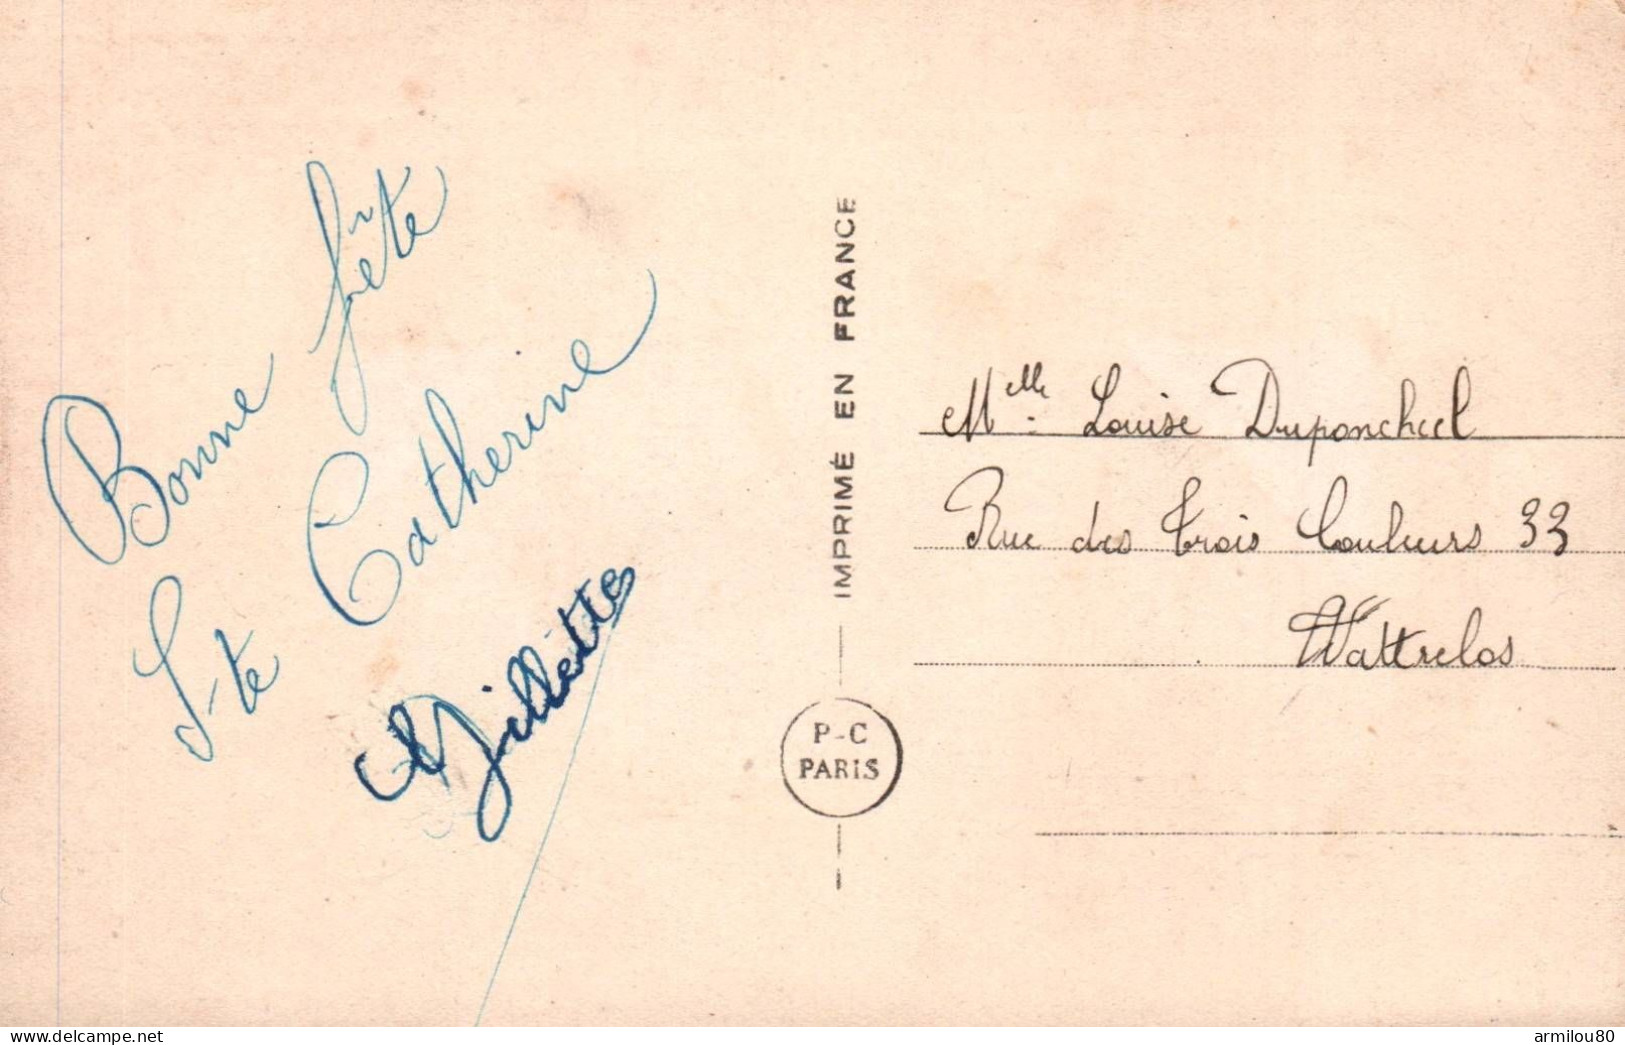 Bonne fête
Ste Catherine
Gillette
IMPRIMÉ EN FRANCE
P-C
PARIS
Melle Louise Duponcheel
Rue des Trois Couleurs 33
Wattrelos
www.delcampe.net
armilou80